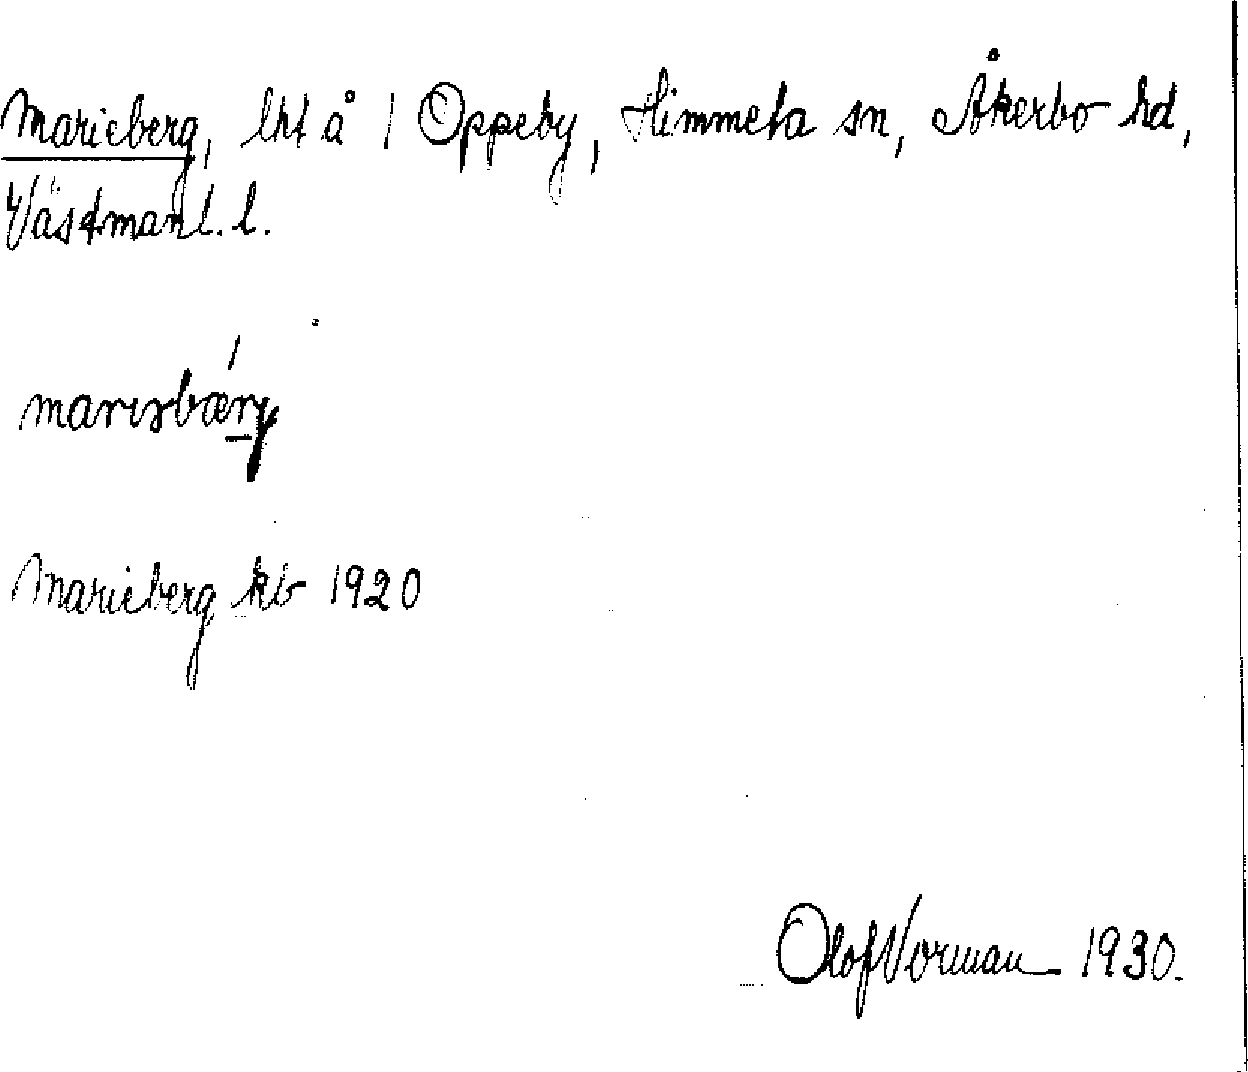 Marieberg, lht å 1 Oppeby, Himmeta sn, Åkerbo hd,
Västmanl. l.
Marieberg kb 1920
Olof Vorman 1930.